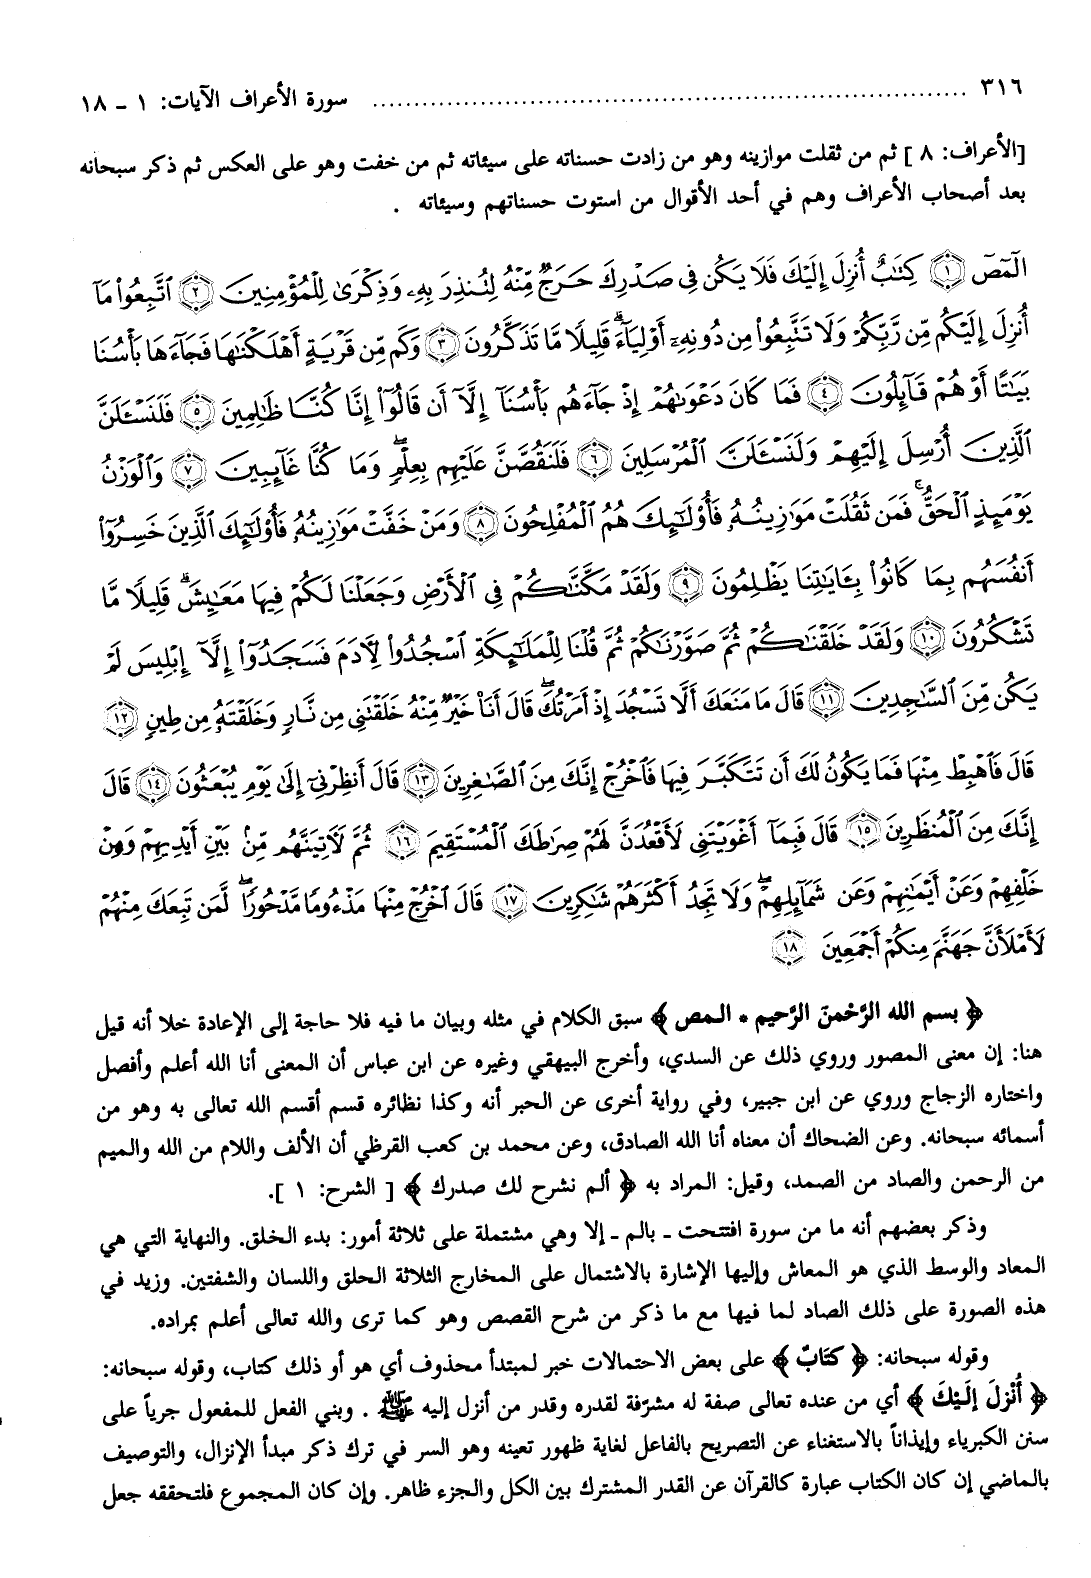 ٣١٦ ........................................ سورة الأعراف الآيات: ١ - ١٨
[الأعراف: ٨ ] ثم من ثقلت موازينه وهو من زادت حسناته على سيئاته ثم من خفت وهو على العكس ثم ذكر سبحانه
بعد أصحاب الأعراف وهم في أحد الأقوال من استوت حسناتهم وسيئاته .
الٓمٓصٓ ١ كِتَٰبٌ أُنزِلَ إِلَيْكَ فَلَا يَكُن فِى صَدْرِكَ حَرَجٌ مِّنْهُ لِتُنذِرَ بِهِۦ وَذِكْرَىٰ لِلْمُؤْمِنِينَ ٢ ٱتَّبِعُوا۟ مَآ
أُنزِلَ إِلَيْكُم مِّن رَّبِّكُمْ وَلَا تَتَّبِعُوا۟ مِن دُونِهِۦٓ أَوْلِيَآءَ ۗ قَلِيلًا مَّا تَذَكَّرُونَ ٣ وَكَم مِّن قَرْيَةٍ أَهْلَكْنَٰهَا فَجَآءَهَا بَأْسُنَا
بَيَٰتًا أَوْ هُمْ قَآئِلُونَ ٤ فَمَا كَانَ دَعْوَىٰهُمْ إِذْ جَآءَهُم بَأْسُنَآ إِلَّآ أَن قَالُوٓا۟ إِنَّا كُنَّا ظَٰلِمِينَ ٥ فَلَنَسْـَٔلَنَّ
ٱلَّذِينَ أُرْسِلَ إِلَيْهِمْ وَلَنَسْـَٔلَنَّ ٱلْمُرْسَلِينَ ٦ فَلَنَقُصَّنَّ عَلَيْهِم بِعِلْمٍ ۖ وَمَا كُنَّا غَآئِبِينَ ٧ وَٱلْوَزْنُ
يَوْمَئِذٍ ٱلْحَقُّ ۚ فَمَن ثَقُلَتْ مَوَٰزِينُهُۥ فَأُو۟لَٰٓئِكَ هُمُ ٱلْمُفْلِحُونَ ٨ وَمَنْ خَفَّتْ مَوَٰزِينُهُۥ فَأُو۟لَٰٓئِكَ ٱلَّذِينَ خَسِرُوٓا۟
أَنفُسَهُم بِمَا كَانُوا۟ بِـَٔايَٰتِنَا يَظْلِمُونَ ٩ وَلَقَدْ مَكَّنَّٰكُمْ فِى ٱلْأَرْضِ وَجَعَلْنَا لَكُمْ فِيهَا مَعَٰيِشَ ۗ قَلِيلًا مَّا
تَشْكُرُونَ ١٠ وَلَقَدْ خَلَقْنَٰكُمْ ثُمَّ صَوَّرْنَٰكُمْ ثُمَّ قُلْنَا لِلْمَلَٰٓئِكَةِ ٱسْجُدُوا۟ لِـَٔادَمَ فَسَجَدُوٓا۟ إِلَّآ إِبْلِيسَ لَمْ
يَكُن مِّنَ ٱلسَّٰجِدِينَ ١١ قَالَ مَا مَنَعَكَ أَلَّا تَسْجُدَ إِذْ أَمَرْتُكَ ۖ قَالَ أَنَا۠ خَيْرٌ مِّنْهُ خَلَقْتَنِى مِن نَّارٍ وَخَلَقْتَهُۥ مِن طِينٍ ١٢
قَالَ فَٱهْبِطْ مِنْهَا فَمَا يَكُونُ لَكَ أَن تَتَكَبَّرَ فِيهَا فَٱخْرُجْ إِنَّكَ مِنَ ٱلصَّٰغِرِينَ ١٣ قَالَ أَنظِرْنِىٓ إِلَىٰ يَوْمِ يُبْعَثُونَ ١٤ قَالَ
إِنَّكَ مِنَ ٱلْمُنظَرِينَ ١٥ قَالَ فَبِمَآ أَغْوَيْتَنِى لَأَقْعُدَنَّ لَهُمْ صِرَٰطَكَ ٱلْمُسْتَقِيمَ ١٦ ثُمَّ لَـَٔاتِيَنَّهُم مِّنۢ بَيْنِ أَيْدِيهِمْ وَمِنْ
خَلْفِهِمْ وَعَنْ أَيْمَٰنِهِمْ وَعَن شَمَآئِلِهِمْ ۖ وَلَا تَجِدُ أَكْثَرَهُمْ شَٰكِرِينَ ١٧ قَالَ ٱخْرُجْ مِنْهَا مَذْءُومًا مَّدْحُورًا ۖ لَّمَن تَبِعَكَ مِنْهُمْ
لَأَمْلَأَنَّ جَهَنَّمَ مِنكُمْ أَجْمَعِينَ ١٨
﴿ بسم الله الرَّحْمنَ الرَّحيم * المص ﴾ سبق الكلام في مثله وبيان ما فيه فلا حاجة إلى الإعادة خلا أنه قيل
هنا: إن معنى المصور وروي ذلك عن السدي، وأخرج البيهقي وغيره عن ابن عباس أن المعنى أنا الله أعلم وأفصل
واختاره الزجاج وروي عن ابن جبير، وفي رواية أخرى عن الحبر أنه وكذا نظائره قسم أقسم الله تعالى به وهو من
أسمائه سبحانه. وعن الضحاك أن معناه أنا الله الصادق، وعن محمد بن كعب القرظي أن الألف واللام من الله والميم
من الرحمن والصاد من الصمد، وقيل: المراد به ﴿ ألم نشرح لك صدرك ﴾ [ الشرح: ١ ].
وذكر بعضهم أنه ما من سورة افتتحت ـ بالم ـ إلا وهي مشتملة على ثلاثة أمور: بدء الخلق. والنهاية التي هي
المعاد والوسط الذي هو المعاش وإليها الإشارة بالاشتمال على المخارج الثلاثة الحلق واللسان والشفتين. وزيد في
هذه الصورة على ذلك الصاد لما فيها مع ما ذكر من شرح القصص وهو كما ترى والله تعالى أعلم بمراده.
وقوله سبحانه: ﴿ كتابٌ ﴾ على بعض الاحتمالات خبر لمبتدأ محذوف أي هو أو ذلك كتاب، وقوله سبحانه:
﴿ أُنْزلَ إلَيْكَ ﴾ أي من عنده تعالى صفة له مشرّفة لقدره وقدر من أنزل إليه ﷺ . وبني الفعل للمفعول جرياً على
سنن الكبرياء وإيذاناً بالاستغناء عن التصريح بالفاعل لغاية ظهور تعينه وهو السر في ترك ذكر مبدأ الإنزال، والتوصيف
بالماضي إن كان الكتاب عبارة كالقرآن عن القدر المشترك بين الكل والجزء ظاهر. وإن كان المجموع فلتحققه جعل